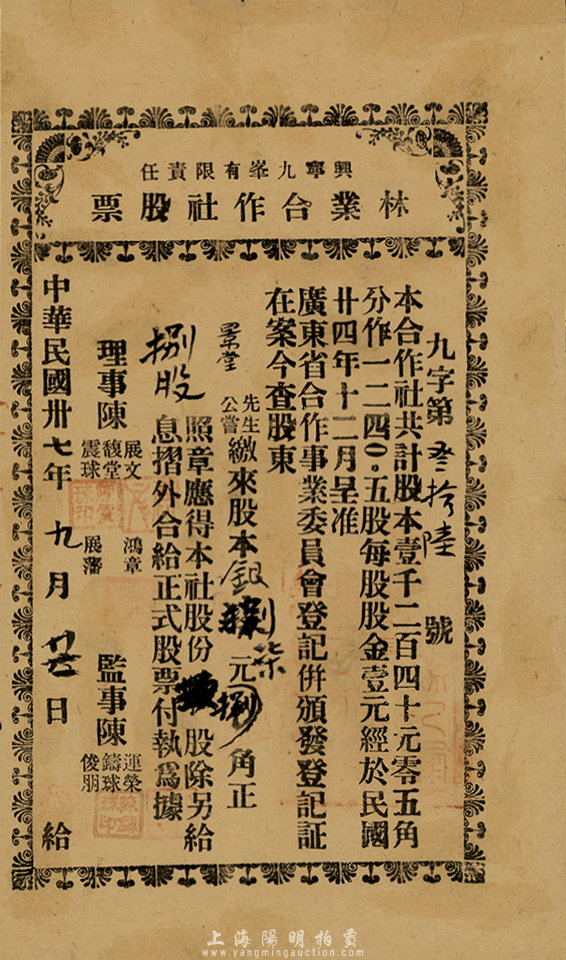 興寧九峯有限責任
林業合作社股票
九字第叁拾陸號
本合作社共計股本壹千二百四十元零五角
分作一二四〇.五股每股股金壹元經於民國
廿四年十二月呈准
廣東省合作事業委員會登記併頒發登記証
在案今查股東
先生
公嘗
繳來股本銀 柒元捌角正
捌股
照章應得本社股份 股除另給
息摺外合給正式股票付執爲據
理事陳 展文 馥堂 震球 鴻章 展藩
監事陳 運榮 鑄球 俊朋
中華民國卅七年九月 日給
上海陽明拍賣
www.yangmingauction.com